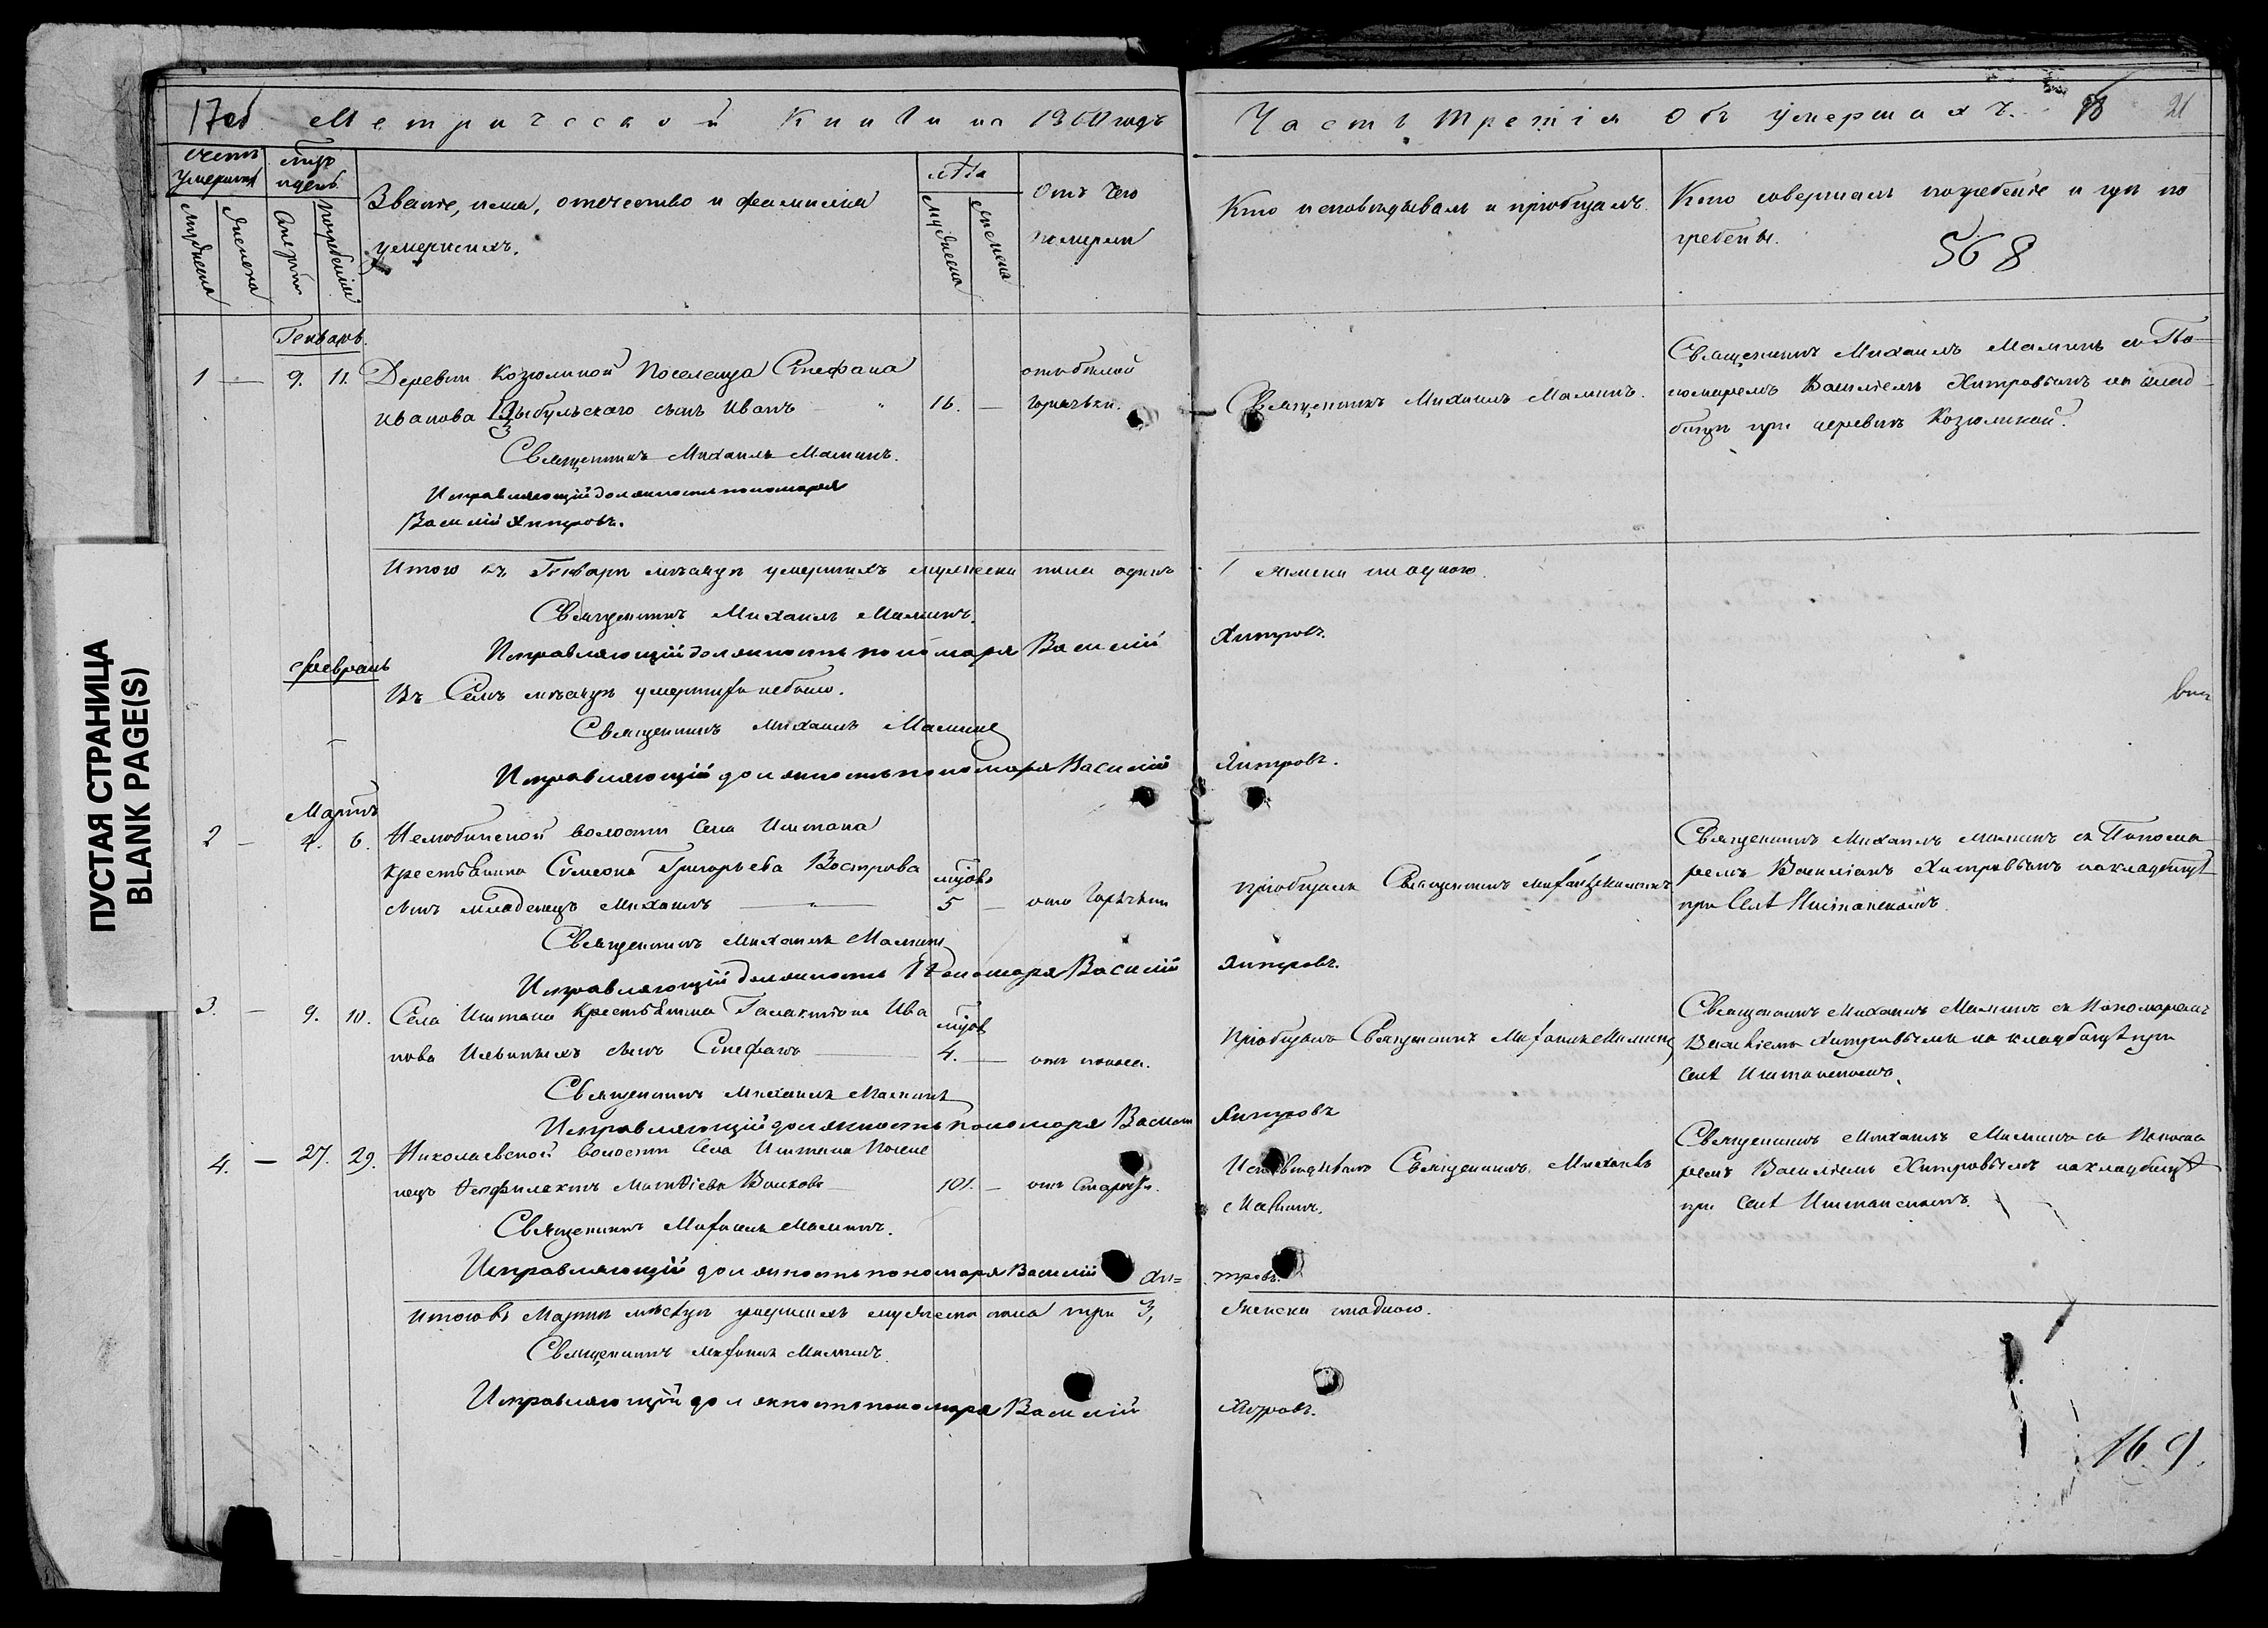 17об Метрической Книги на 18 годъ
Часть третія объ умершихъ. 21
счетъ умершихъ
мѣсяцъ и день
Званіе, имя, отечество и фамилія
умершихъ.
лѣта
Отъ чего
померли
Кто исповѣдывалъ и пріобщалъ.
Кто совершалъ погребеніе и гдѣ по
гребены.
568
мужеска
женска
смерти
погребенія
мужеска
женска
Генварь.
1 — 9. 11. Деревни Козюлиной Поселенца Стефана
Иванова Цыбульскаго сынъ Иванъ 16. —
отъ бѣлой
горячьки.
Священникъ Михаилъ Маминъ.
Священникъ Михаилъ Маминъ съ По
номаремъ Василіемъ Хитровымъ на клад
бищѣ при деревнѣ Козюлиной.
Священникъ Михаилъ Маминъ.
Исправляющій должность пономаря
Василій Хитровъ.
Итого въ Генварѣ мѣсяцѣ умершихъ мужеска пола одинъ 1 женска ни одного.
Священникъ Михаилъ Маминъ.
Исправляющій должность пономаря Василій Хитровъ.
Февраль
Въ Семъ мѣсяцѣ умершихъ небыло.
Священникъ Михаилъ Маминъ
Исправляющій должность пономаря Василій Хитровъ.
Мартъ
2 — 4. 6. Нелюбинской волости Села Иштана
крестьянина Симеона Григорьева Вострова
сынъ младенецъ Михаилъ 5 — отъ горячки
пріобщалъ Священникъ Михаилъ Маминъ
Священникъ Михаилъ Маминъ съ Понома
ремъ Василіемъ Хитровымъ на кладбищѣ
при Селѣ Иштанскомъ.
Священникъ Михаилъ Маминъ
Исправляющій должность Пономаря Василій Хитровъ.
3. — 9. 10. Села Иштана Крестьянина Галактіона Ива
нова сынъ Стефанъ 4. — отъ поноса.
Пріобщалъ Священникъ Михаилъ Маминъ
Священникъ Михаилъ Маминъ съ Пономаремъ
Василіемъ Хитровымъ на кладбищѣ при
селѣ Иштанскомъ.
Священникъ Михаилъ Маминъ
Исправляющій должность пономаря Василій Хитровъ
4. — 27. 29. Николаевской волости Села Иштана Посе
лецъ Феофилактъ Матвіевъ Волковъ 101. — отъ старости.
Исповѣдывалъ Священникъ Михаилъ
Маминъ.
Священникъ Михаилъ Маминъ съ Понома
ремъ Василіемъ Хитровымъ на кладбищѣ
при селѣ Иштанскомъ.
Священникъ Михаилъ Маминъ.
Исправляющій должность пономаря Василій Хи=
тровъ.
Итого въ Мартѣ мѣсяцѣ умершихъ мужеска пола три 3, женска ни одного.
Священникъ Михаилъ Маминъ.
Исправляющій должность пономаря Василій Хитровъ.
169.
ПУСТАЯ СТРАНИЦА
BLANK PAGE(S)